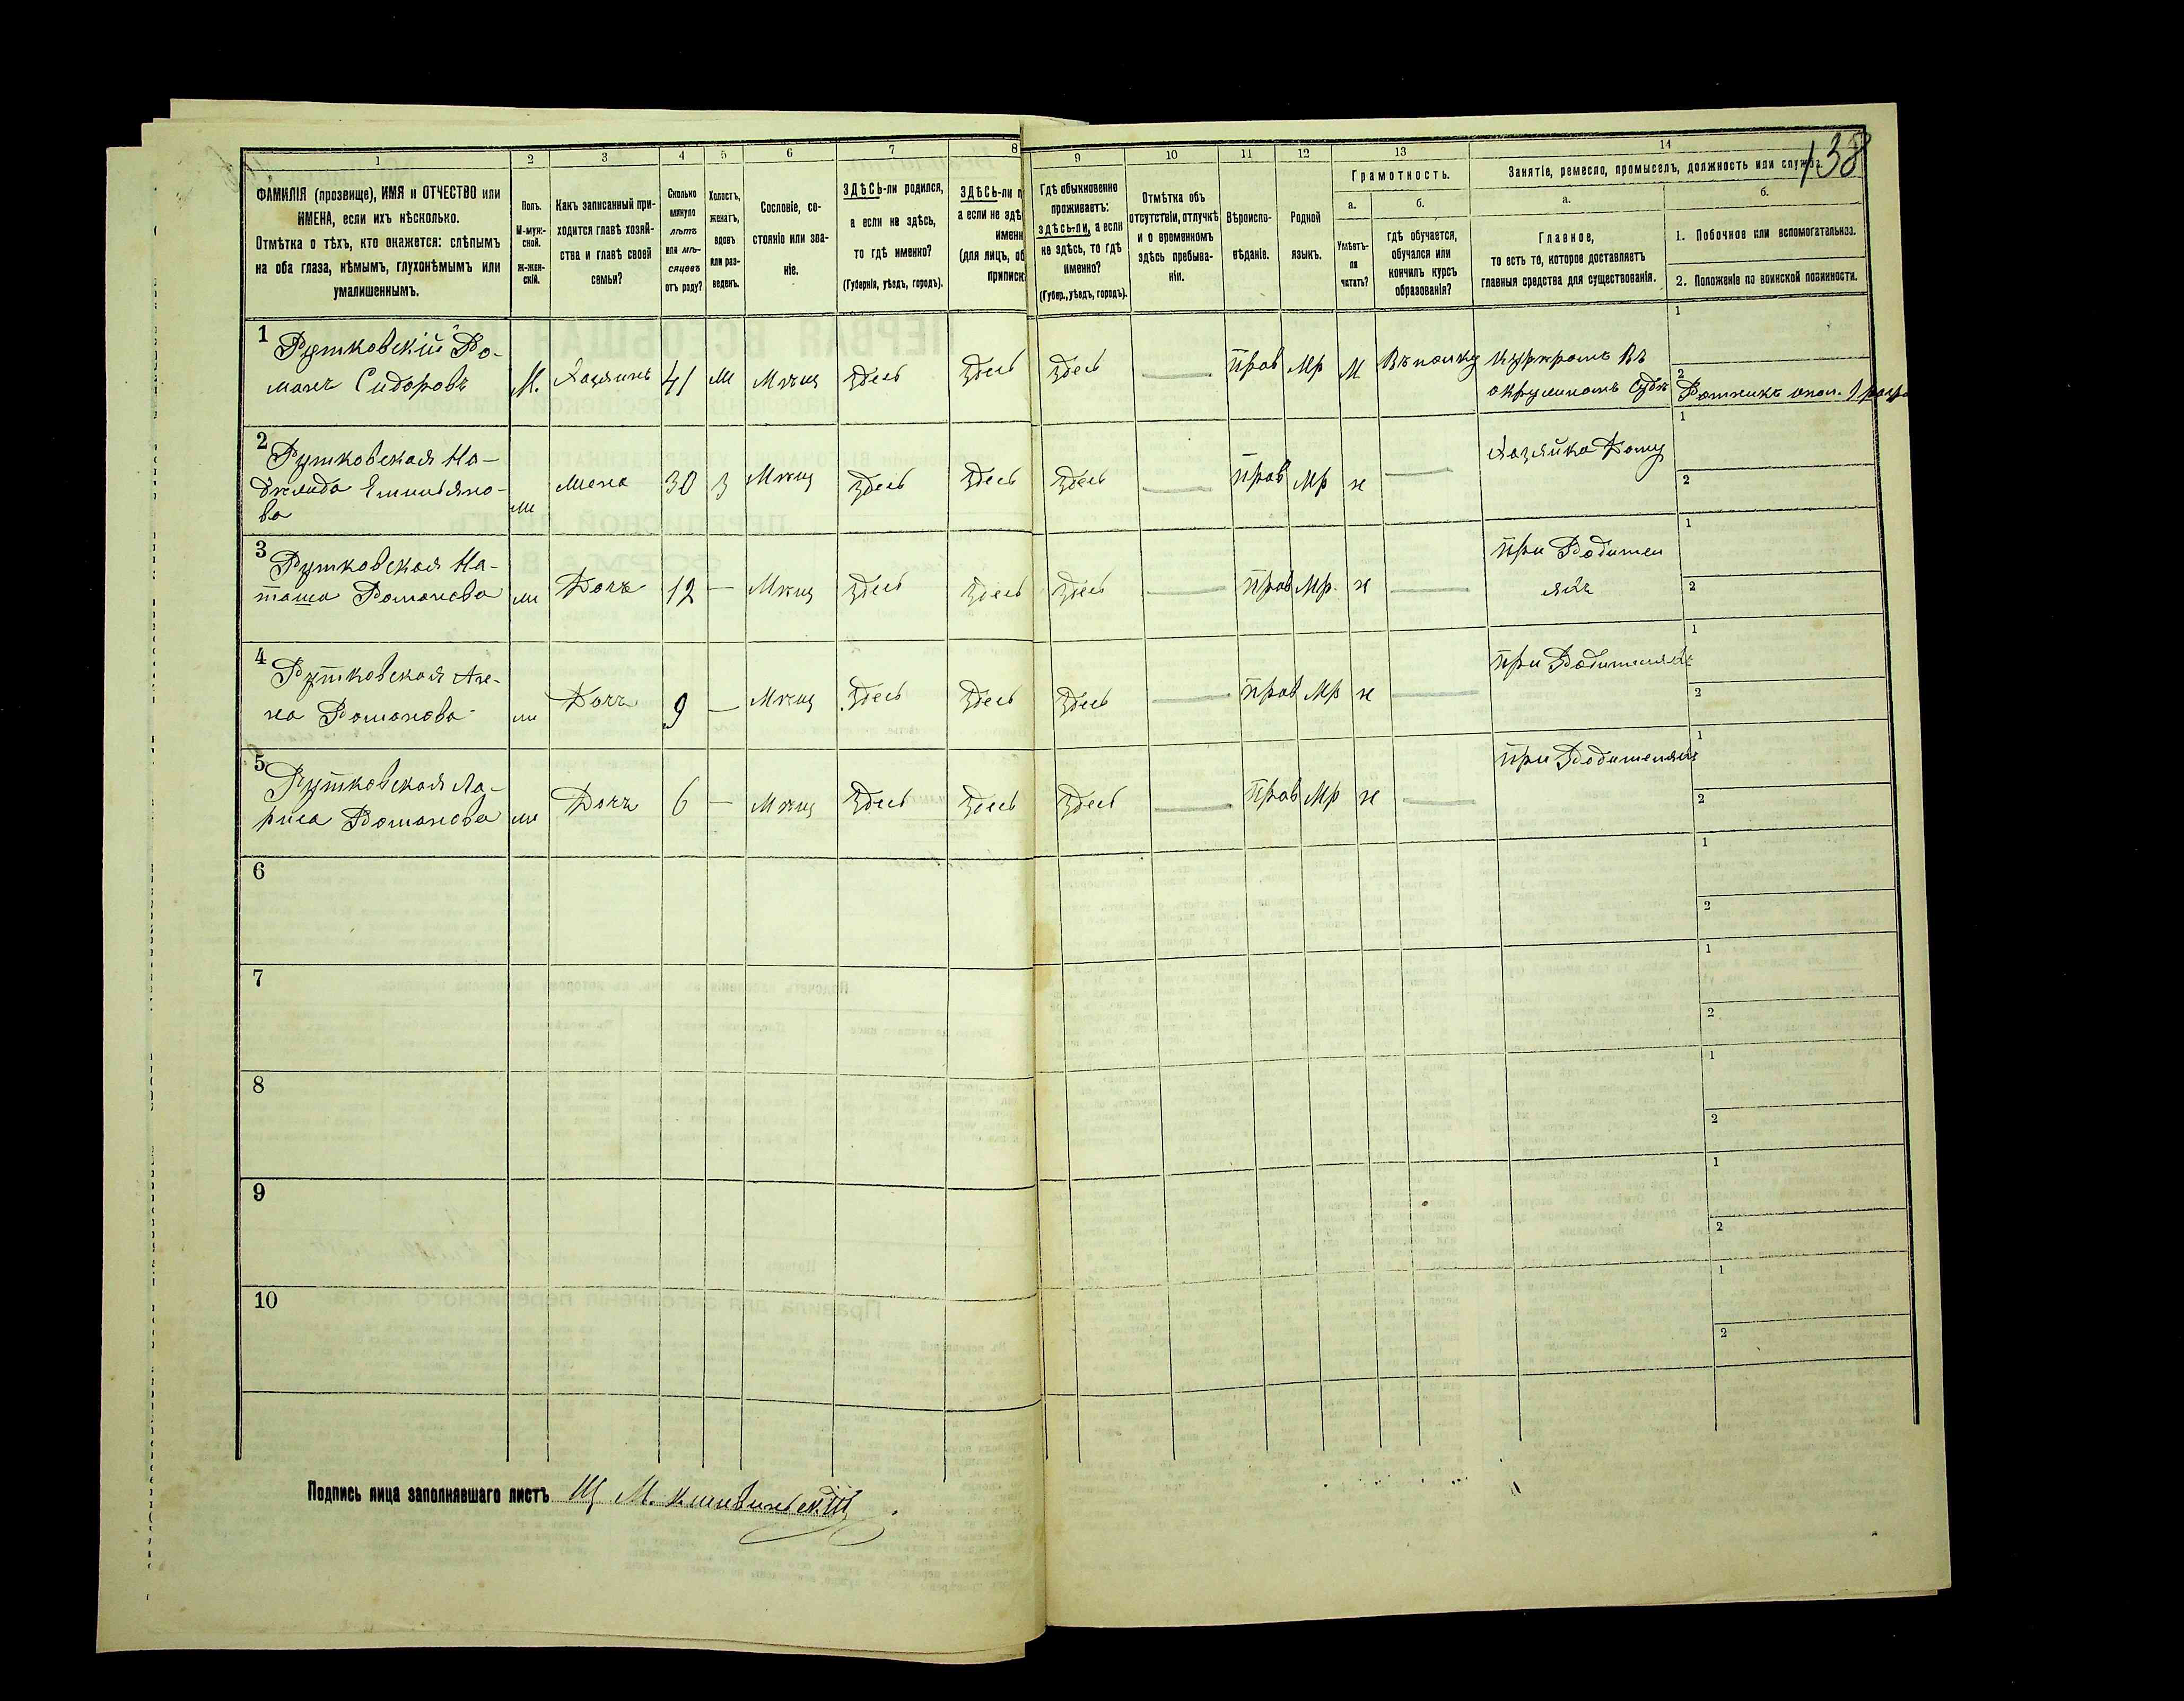 138
1
2
3
4
5
6
7
8
9
10
11
12
13
14
ФАМИЛІЯ (прозвище), ИМЯ и ОТЧЕСТВО или
ИМЕНА, если ихъ нѣсколько.
Отмѣтка о тѣхъ, кто окажется: слѣпымъ
на оба глаза, нѣмымъ, глухонѣмымъ или
умалишеннымъ.
Полъ.
М-муж-
ской.
Ж-жен-
скій.
Какъ записанный при-
ходится главѣ хозяй-
ства и главѣ своей
семьи?
Сколько
минуло
лѣтъ
или мѣ-
сяцевъ
отъ роду?
Холостъ,
женатъ,
вдовъ
или раз-
веденъ.
Сословіе, со-
стояніе или зва-
ніе.
ЗДѢСЬ-ли родился,
а если не здѣсь,
то гдѣ именно?
(Губернія, уѣздъ, городъ).
ЗДѢСЬ-ли п
а если не здѣ
именн
(для лицъ, об
приписк
Гдѣ обыкновенно
проживаетъ:
здѣсь-ли, а если
не здѣсь, то гдѣ
именно?
(Губер., уѣздъ, городъ).
Отмѣтка объ
отсутствіи, отлучкѣ
и о временномъ
здѣсь пребыва-
ніи.
Вѣроиспо-
вѣданіе.
Родной
языкъ.
Грамотность.
а.
Умѣетъ-
ли
читать?
б.
гдѣ обучается,
обучался или
кончилъ курсъ
образованія?
Занятіе, ремесло, промыселъ, должность или служба.
а.
Главное,
то есть то, которое доставляетъ
главныя средства для существованія.
б.
1. Побочное или вспомогательное.
2. Положеніе по воинской повинности.
1 Рутковскій Ро-
манъ Сидоровъ М. Хазяинъ 41 Ж Мѣщ Здесь Здесь Здесь — Прав Мр М Въ полку
округномъ Судѣ
1
2 Ратникъ опол.
2 Рутковская На-
дѣжда Емильяно-
ва ж Жена 30 З Мѣщ Здесь Здесь Здесь — Прав Мр н — Хазяйка Дому
1
2
3 Рутковская На-
таша Романова ж Дочь 12 — Мѣщ Здесь Здесь Здесь — Прав Мр. н — при Родител
яхъ
1
2
4 Рутковская Але-
на Романова ж Дочь 9 — Мѣщ Здесь Здесь Здесь — Прав Мр н — при Родителяхъ
1
2
5 Рутковская Ла-
риса Романова ж Дочь 6 — Мѣщ Здесь Здесь Здесь — Прав Мр н — при Родителяхъ
1
2
6
1
2
7
1
2
8
1
2
9
1
2
10
1
2
Подпись лица заполнявшаго листъ